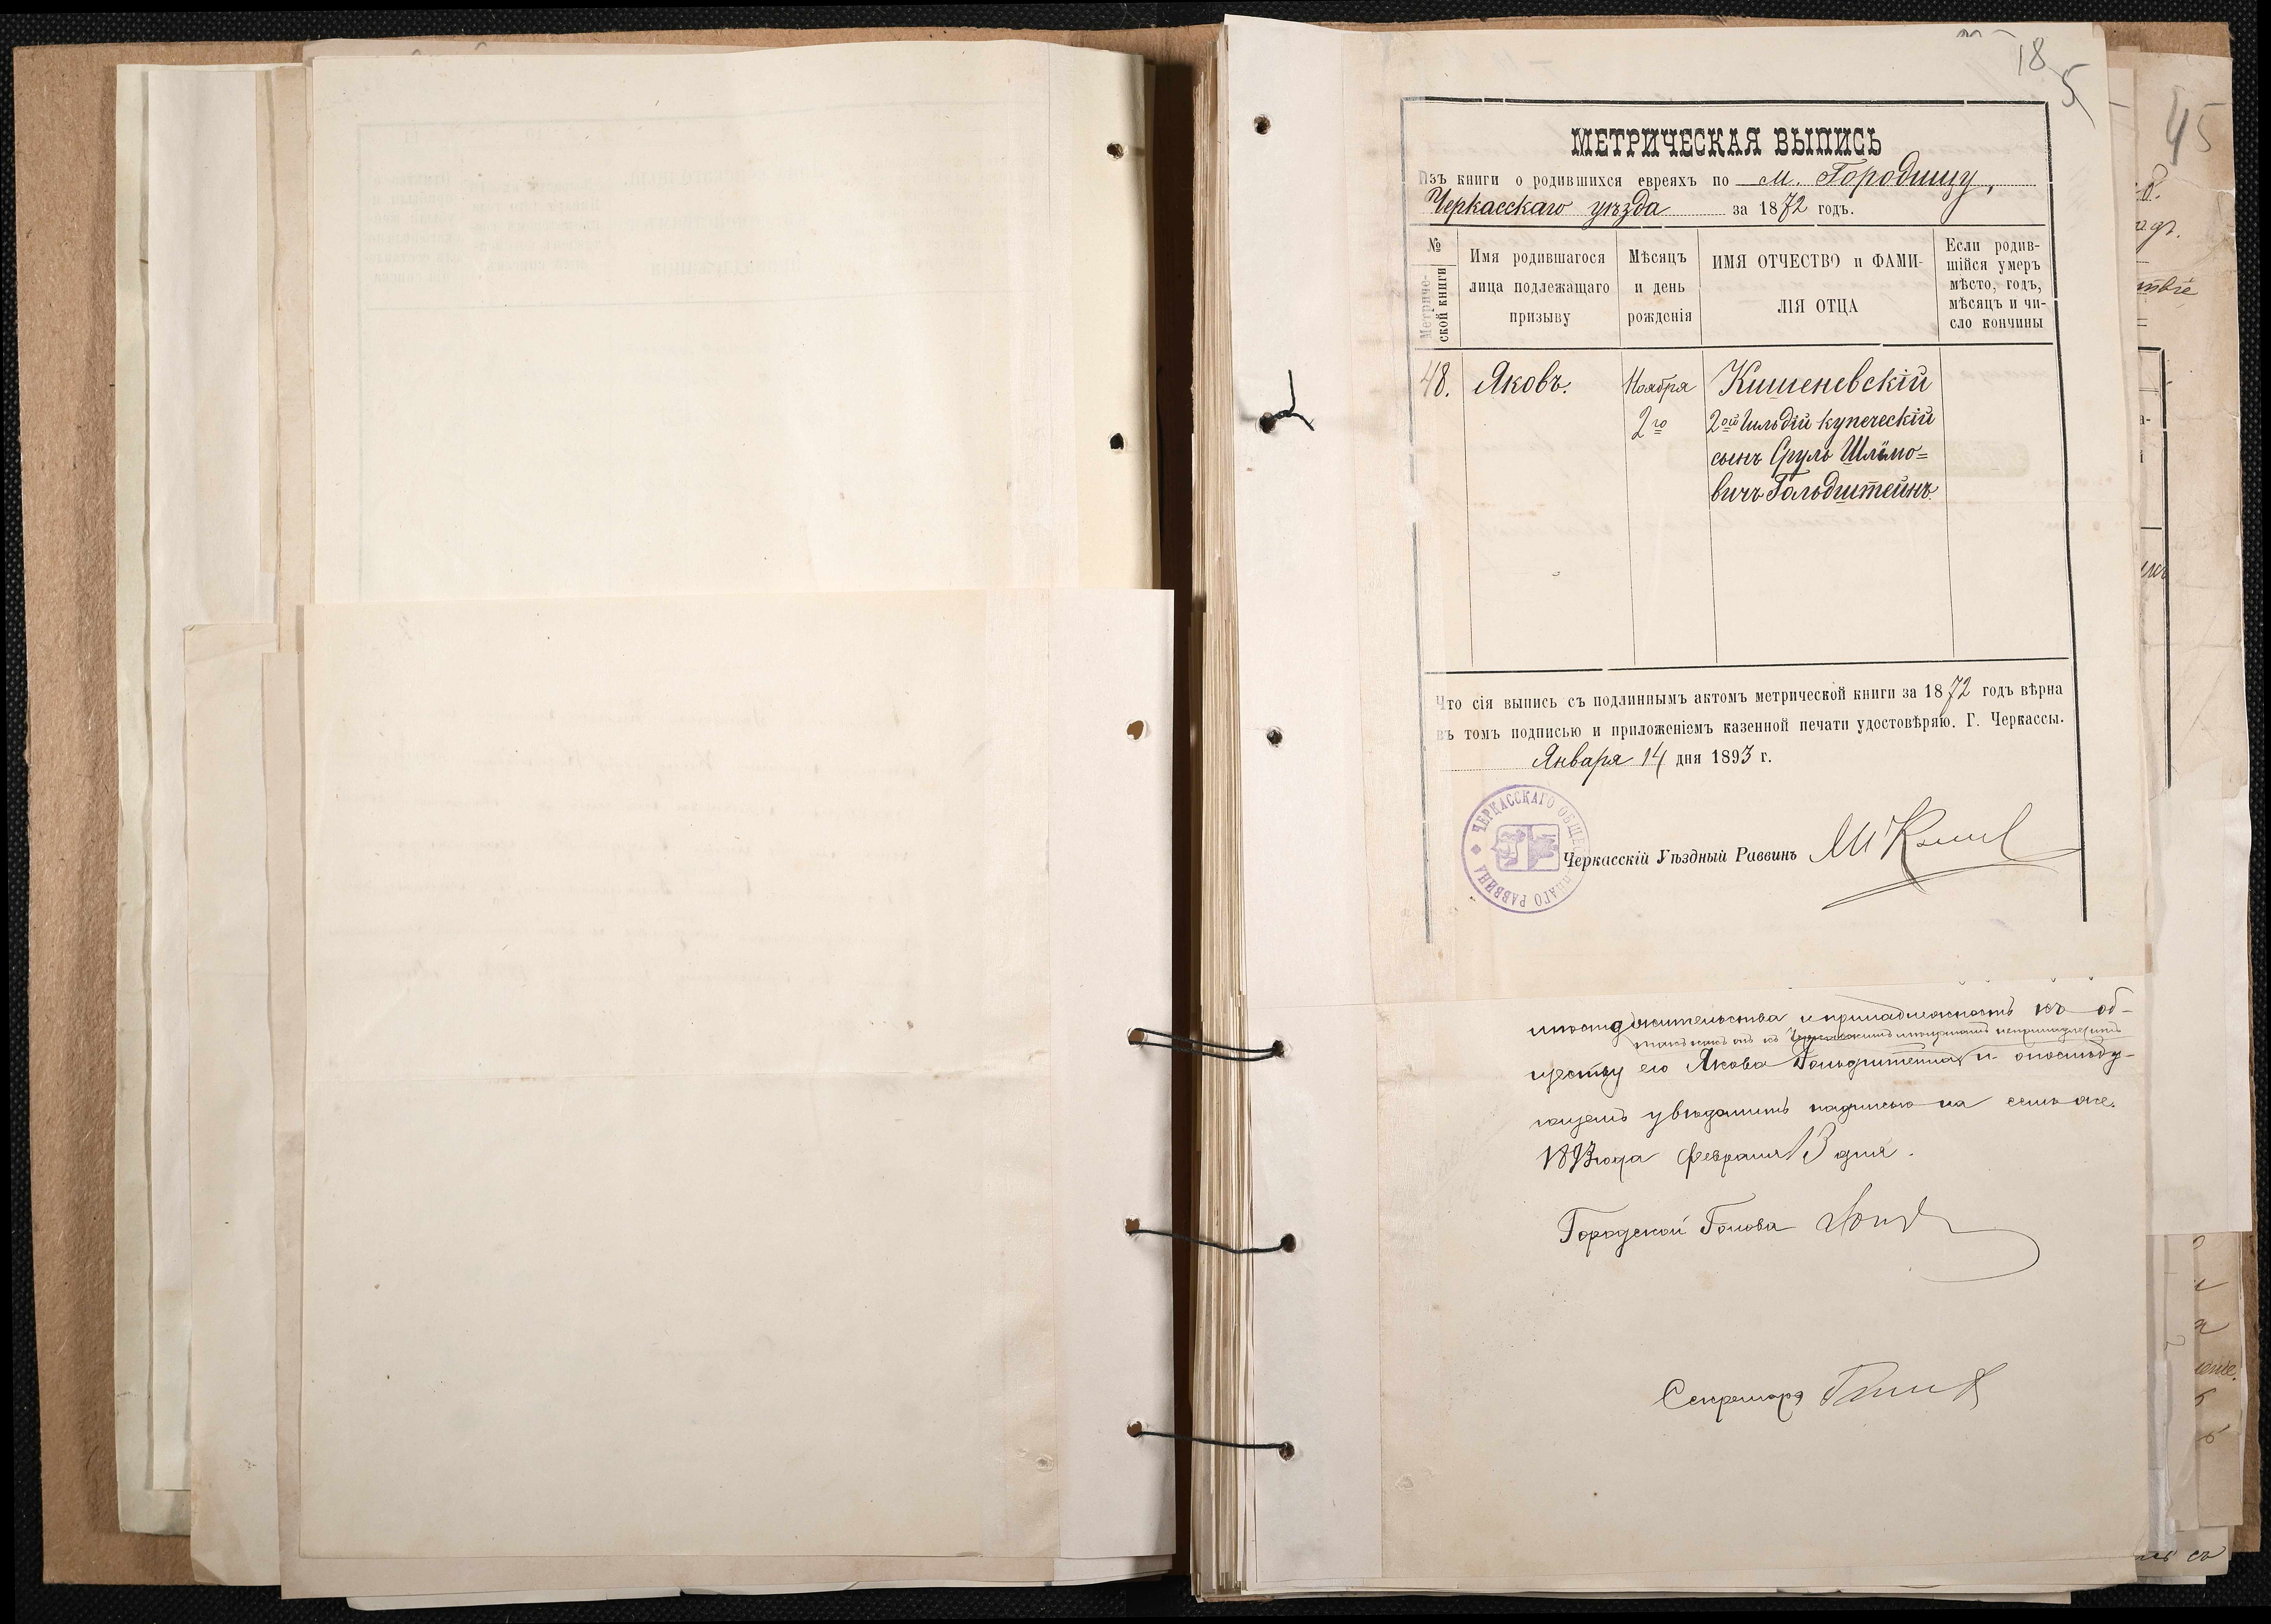 18
5
45
МЕТРИЧЕСКАЯ ВЫПИСЬ
Изъ книги о родившихся евреяхъ по м. Городищу,
Черкасскаго уѣзда за 1872 годъ.
№ Метриче-
ской книги
Имя родившагося
лица подлежащаго
призыву
Мѣсяцъ
и день
рожденія
ИМЯ ОТЧЕСТВО и ФАМИ-
ЛІЯ ОТЦА
Если родив-
шійся умеръ
мѣсто, годъ,
мѣсяцъ и чи-
сло кончины
48. Яковъ. Ноября Кишеневскій
2го 2ой Гильдіи купеческій
сынъ Сруль Шлёмо=
вичъ Гольдштейнъ.
Что сія выпись съ подлиннымъ актомъ метрической книги за 1872 годъ вѣрна
въ томъ подписью и приложеніемъ казенной печати удостовѣряю. Г. Черкассы.
Января 14 дня 1893 г.
ЧЕРКАССКАГО ОБЩЕСТВЕННАГО РАВВИНА
Черкасскій Уѣздный Раввинъ
жительства и принадлежность къ об-
такъ какъ онъ къ Черкасскимъ мѣщанамъ непринадлежитъ
ществу его Якова Гольдштейна и о послѣду-
ющемъ увѣдомить надписью на семъ же.
1893 года февраля 13 дня.
Городской Голова
Секретарь